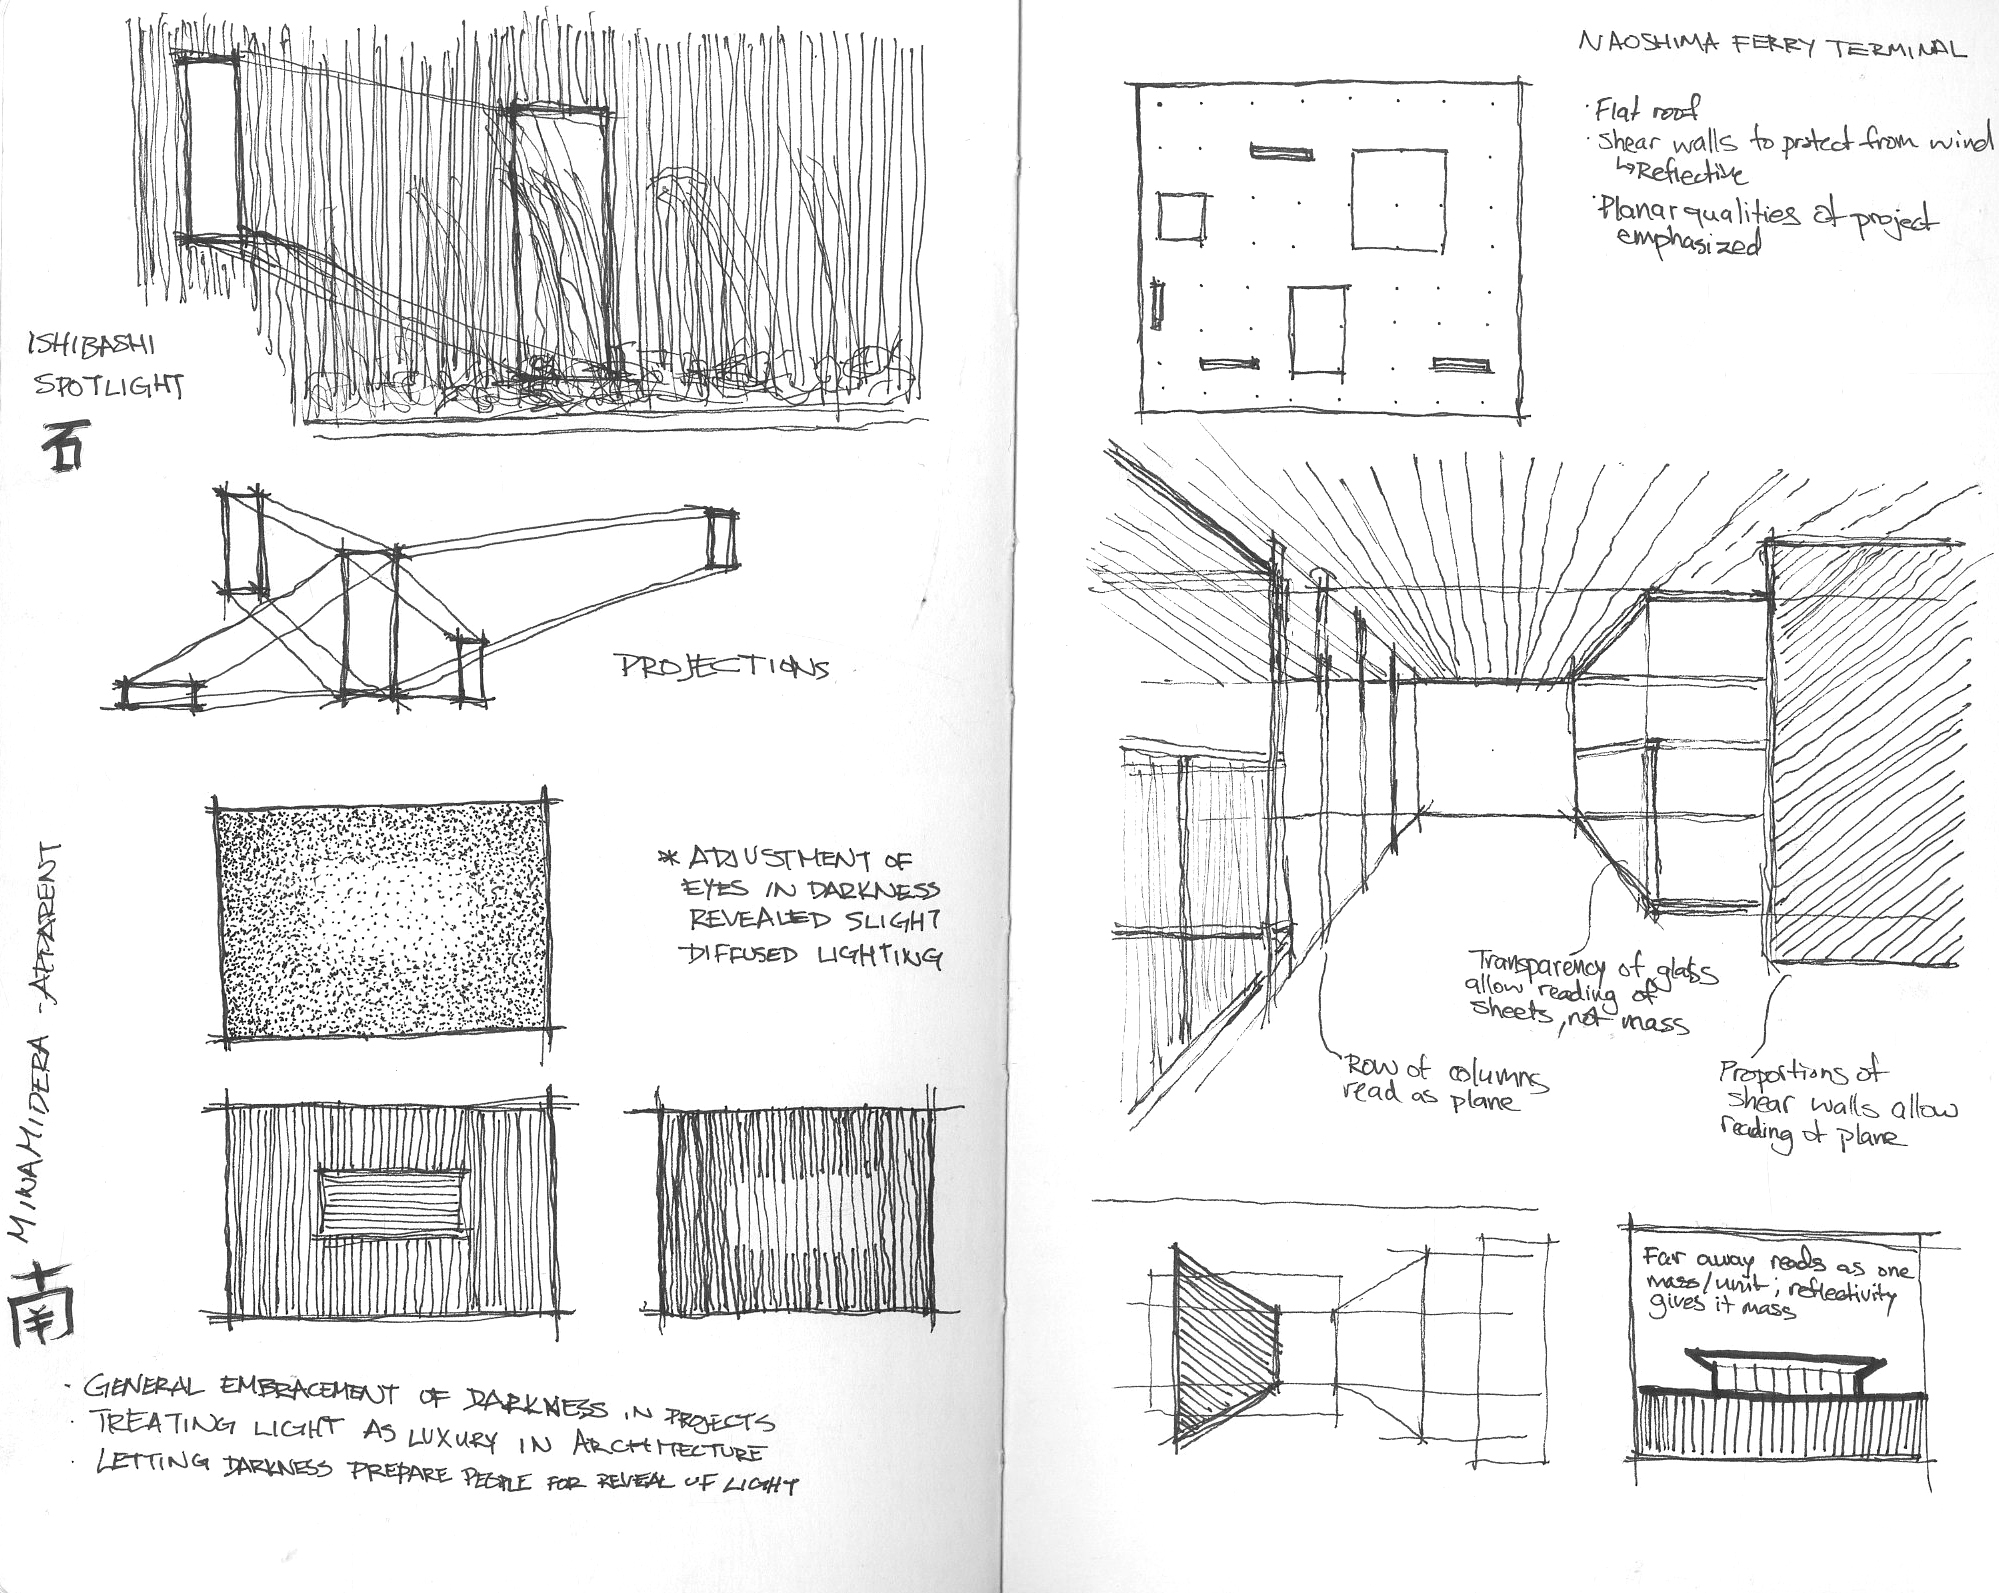 ISHIBASHI
SPOTLIGHT
石
PROJECTIONS
* ADJUSTMENT OF
EYES IN DARKNESS
REVEALED SLIGHT
DIFFUSED LIGHTING
南 MINAMIDERA - APPARENT
· GENERAL EMBRACEMENT OF DARKNESS IN PROJECTS
· TREATING LIGHT AS LUXURY IN ARCHITECTURE
· LETTING DARKNESS PREPARE PEOPLE FOR REVEAL OF LIGHT
NAOSHIMA FERRY TERMINAL
· Flat roof
· Shear walls to protect from wind
↳ Reflective
· Planar qualities of project
emphasized
Transparency of glass
allow reading of
sheets, not mass
Row of columns
read as plane
Proportions of
shear walls allow
reading of plane
Far away reads as one
mass/unit; reflectivity
gives it mass